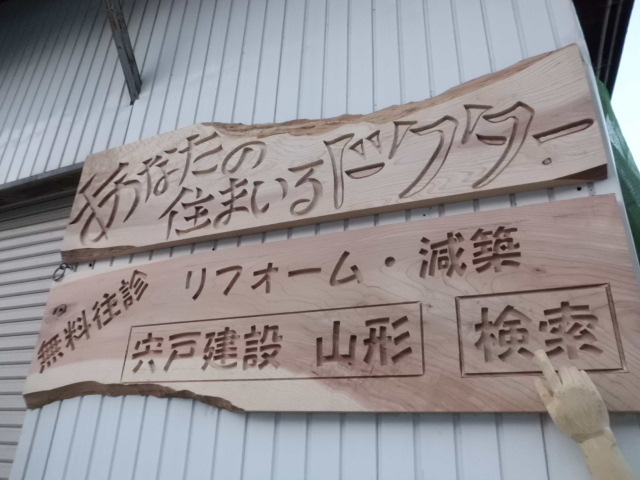 あなたの
住まいるドクター
無料往診 リフォーム・減築
宍戸建設 山形 検索